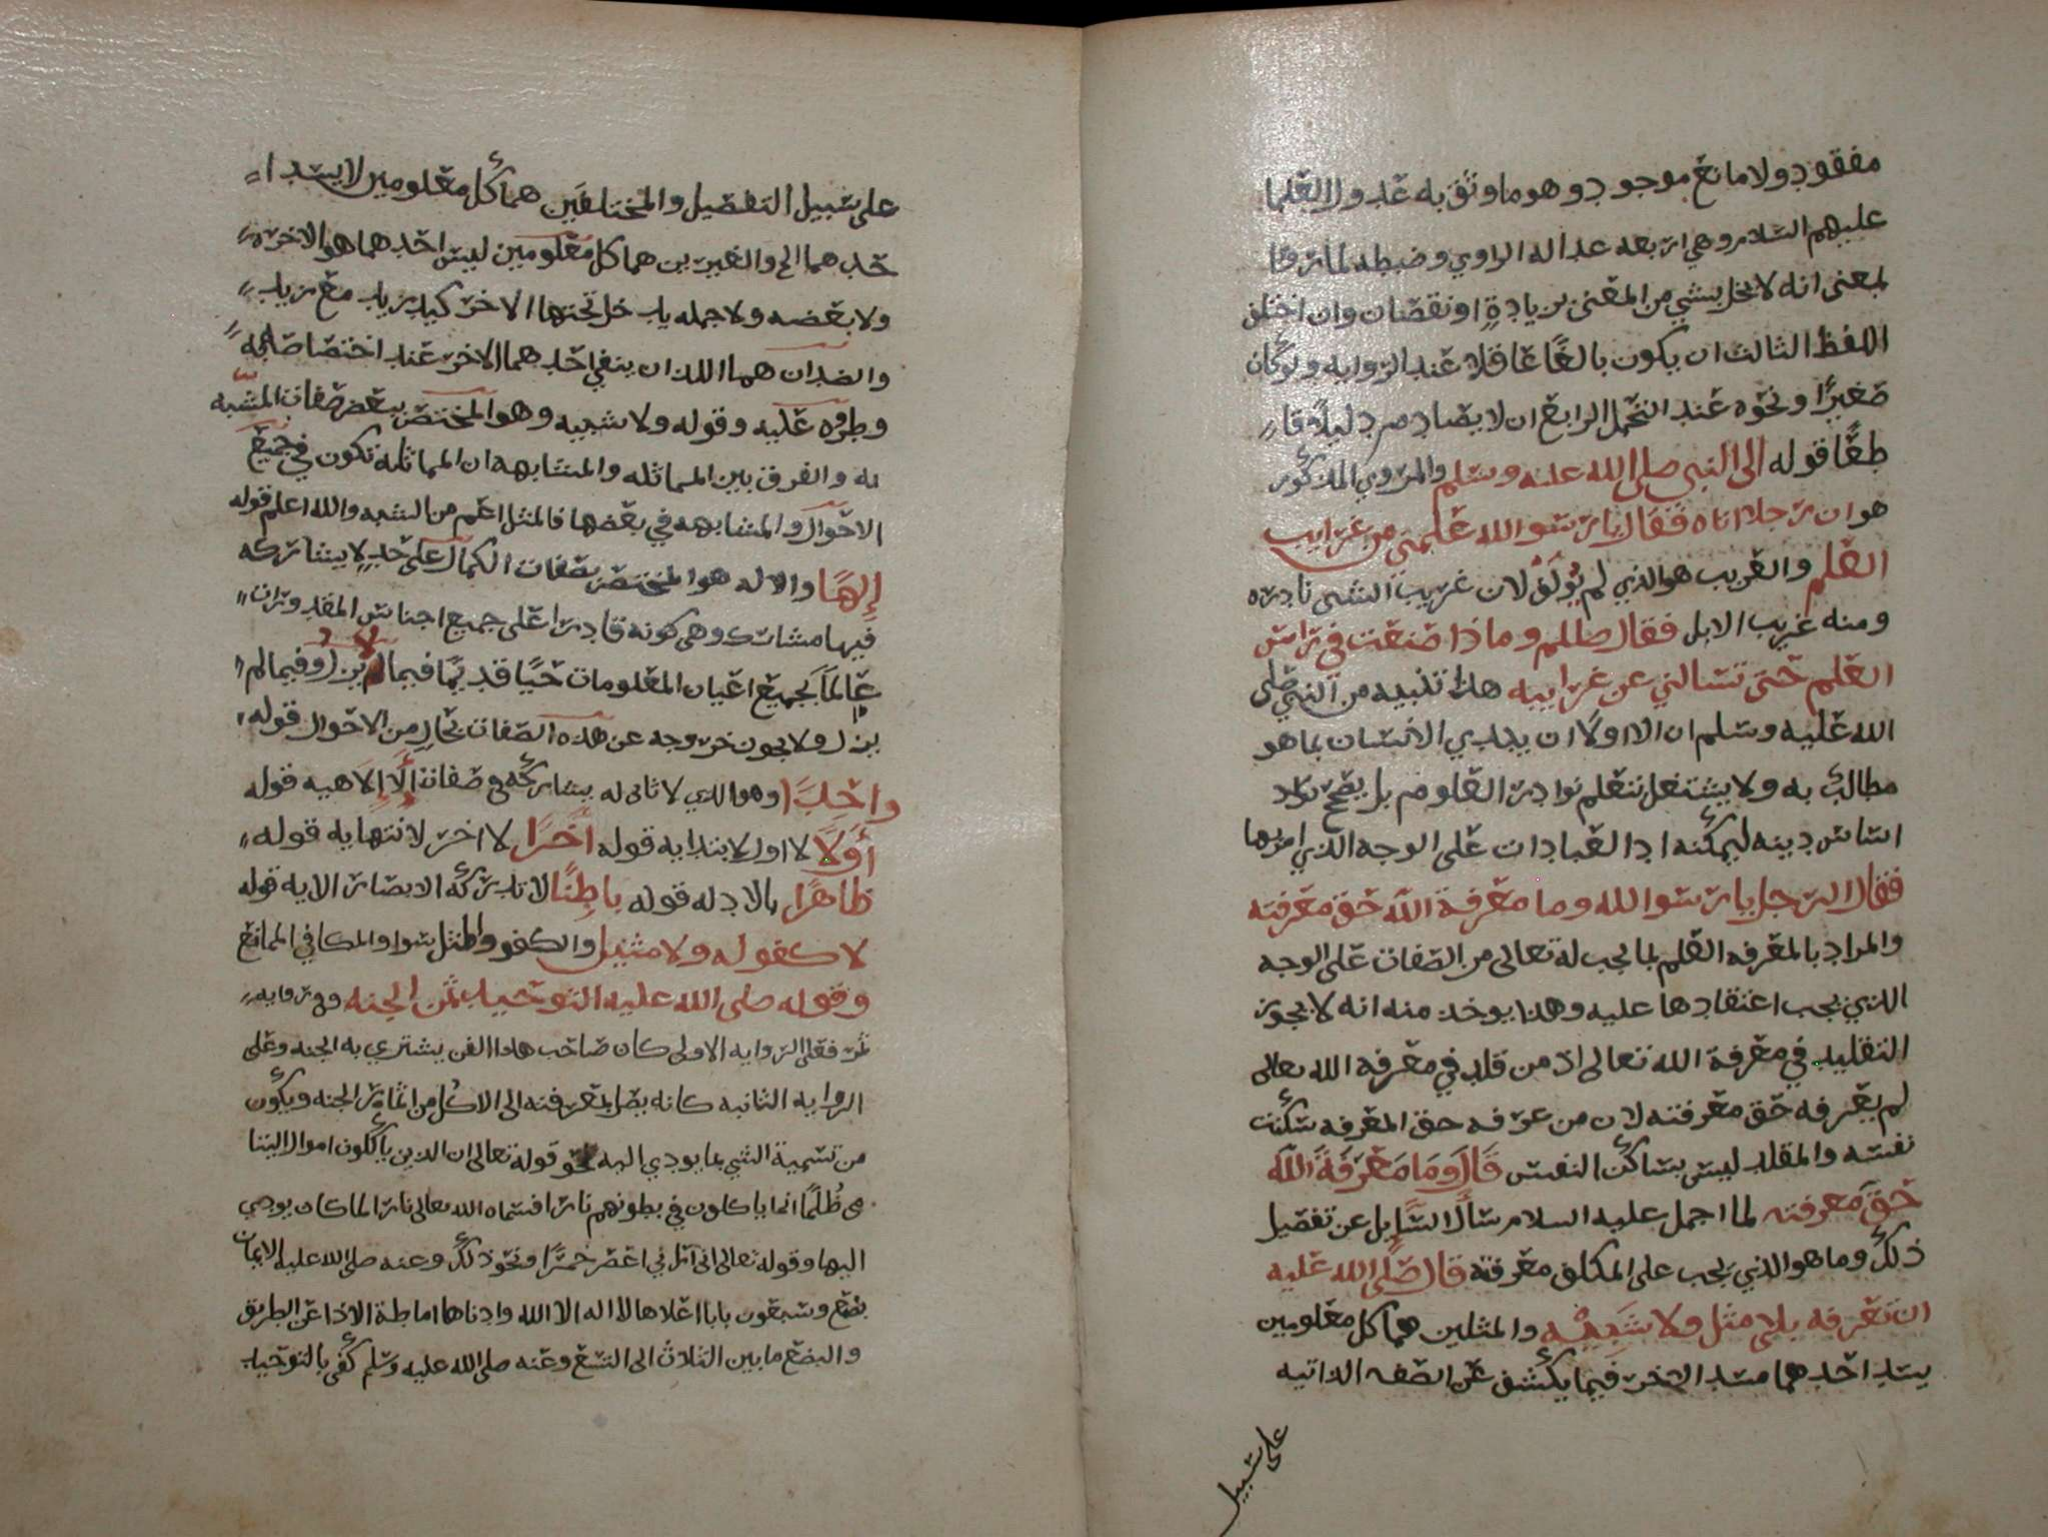 مفقود ولا مانع موجود وهو ما وثق به عدول العلما
عليهم السلام وهي اربعه عداله الراوي وضبطه لما رقا
لمعنى انه لا يخل بشي من المعنى بزيادةٍ او نقصان وان اختلف
اللفظ الثالث ان يكون بالغًا عاقلا عند الروايه ولو كان
صغيرًا ونحوه عند التحمل الرابع ان لا يصادم دليلاً قا
طعًا قوله الى النبي صلى الله عليه وسلم والمروي المذكور
هو ان رجلا اتاه فقال يا رسوالله علمني من غرايب
العلم والغريب هو الذي لم يؤلف لان غريب الشي نادره
ومنه غريب الابل فقال صللم وماذا صنعت في راس
العلم حتى تسالني عن غرايبه هذا تنبيه من النبي صلى
الله عليه وسلم ان الاولا ان يبدي الانسان بما هو
مطالب به ولا يشتغل بتعلم نوادر العلوم بل يصحح
اساس دينه ليمكنه ادا العبادات على الوجه الذي امر بها
فقال الرجل يا رسوالله وما معرفة الله حق معرفته
والمراد بالمعرفه العلم بما يجب له تعالى من الصفات على الوجه
الذي يجب اعتقادها عليه وهذا يوخذ منه انه لا يجوز
التقليد في معرفة الله تعالى اذ من قلد في معرفة الله تعالى
لم يعرفه حق معرفته لان من عرفه حق المعرفه سكنت
نفسه والمقلد ليس بساكن النفس قَالَ وَمَا مَعْرَفَةُ اللَّه
حَقَّ معرفته لما اجمل عليه السلام سأل السَّايل عن تفصيل
ذلك وما هو الذي يجب على المكلف معرفته قال صَلَّى الله عليه
ان تعرفه بلى مثل ولا شَبِيْه والمثلين هما كل معلومين
يسد احدهما مسد الاخر فيما يكشف عن الصفه الذاتيه
على سبيل
على سبيل التفصيل والمختلفَين هما كل معلومين لا يسد ا
حدهما الخ والغيرين هما كل معلومين ليس احدهما هو الاخر
ولا بعضه ولا جمله يدخل تحتها الاخر كيد زيد مع زيد
والضدان هما اللذان ينفي احدهما الاخر عند اختصاصه به
وطروه عليه وقوله ولا شبيه وهو المختص ببعض صفات المشبه
به والفرق بين المماثله والمشابهه ان المماثله تكون في جميع
الاحوال والمشابهه في بعضها فالمثل اعم من الشبه والله اعلم قوله
إِلهًا والاله هو المختص بصفات الكمال على حدٍ لا يشاركه
فيها مشارك وهي كونه قادرا على جميع اجناس المقدورات
عالمًا بجميع اعيان المعلومات حيًا قديمًا فيما لم يزل وفيما لم
يزل ولا يجوز خروجه عن هذه الصفات بحالٍ من الاحوال قوله
واحِدًا وهو الذي لا ثاني له يشاركه في صفات الإلاهيه قوله
أَوَلاً لا اول لابتدايه قوله أَخِرًا لا اخر لانتهايه قوله
ظاهرًا بالادله قوله باطِنًا لا تدركه الابصار الايه قوله
لا كفو له ولا مثيل والكفو والمثل سوا والمكافي المماثع
وقوله صلى الله عليه التوحيد ثمن الجنه وفي روايه
ثمر فعلى الروايه الاولى كان صاحب هذا الفن يشتري به الجنه وعلى
الروايه الثانيه كانه يصل بمعرفته الى الاكل من اثمار الجنه ويكون
من تسمية الشي بما يودي اليه نحو قوله تعالى ان الذين ياكلون اموال اليتا
مى ظُلمًا انما ياكلون في بطونهم نارا فسماه الله تعالى نارا لما كان يودي
اليها وقوله تعالى اني اراني اعصر خمرًا ونحو ذلك وعنه صلى الله عليه الايمان
بضع وسبعون بابا اعلاها لا اله الا الله وادناها اماطة الاذا عن الطريق
والبضع ما بين الثلاث الى التسع وعنه صلى الله عليه وسلم كفى بالتوحيد